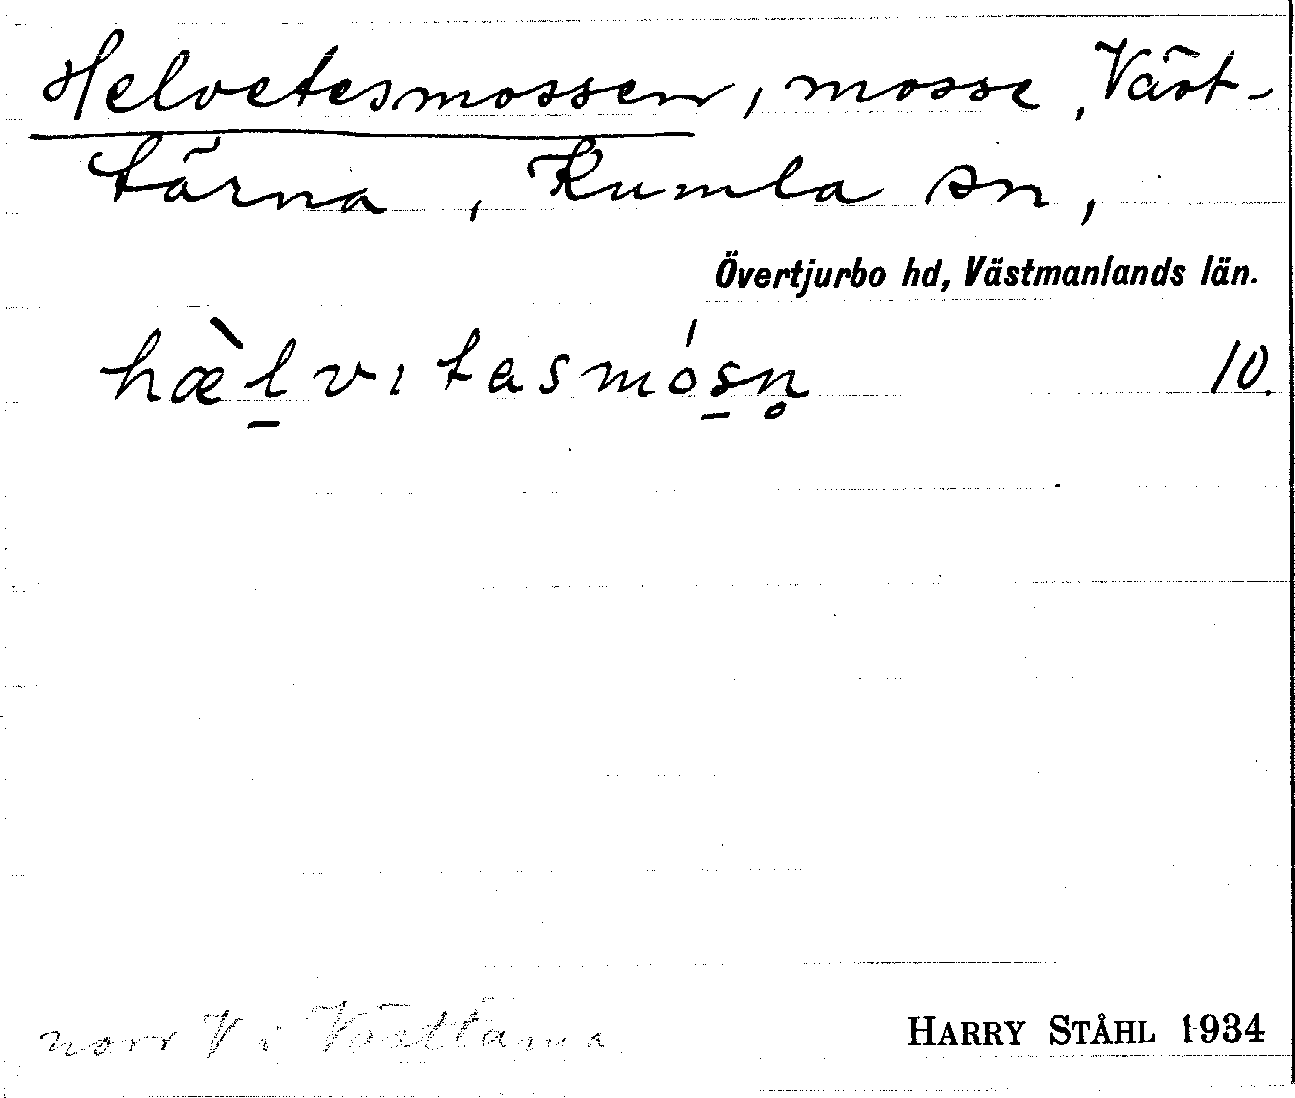 Helvetesmossen, mosse, Väst-
tärna, Kumla sn,
Övertjurbo hd, Västmanlands län.
hæ̀l̠vıtasmós̠n̥ 10.
norr V i Västtärna
HARRY STÅHL 1934